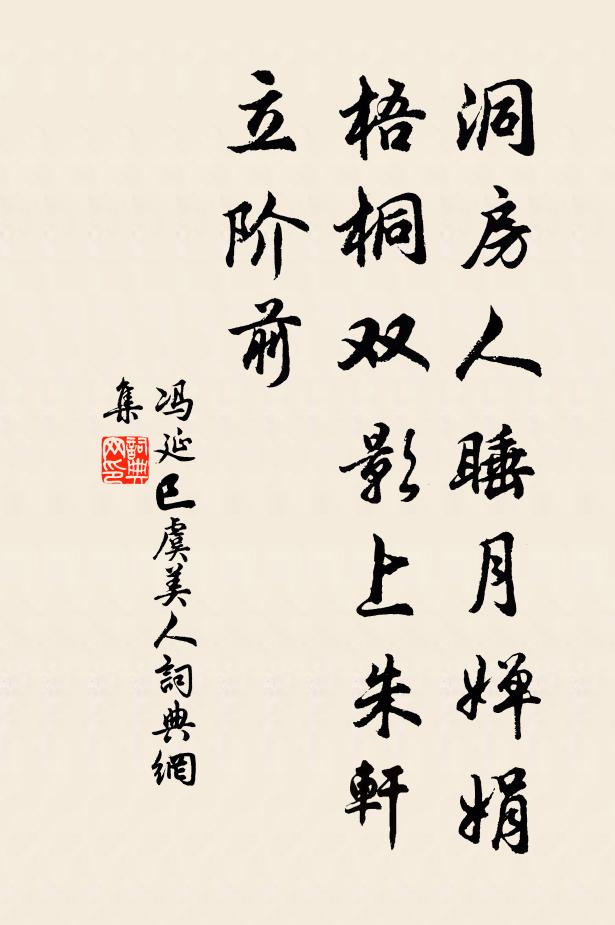 洞房人睡月婵娟
梧桐双影上朱軒
立阶前
冯延巳虞美人詞典網
集
詞典网印